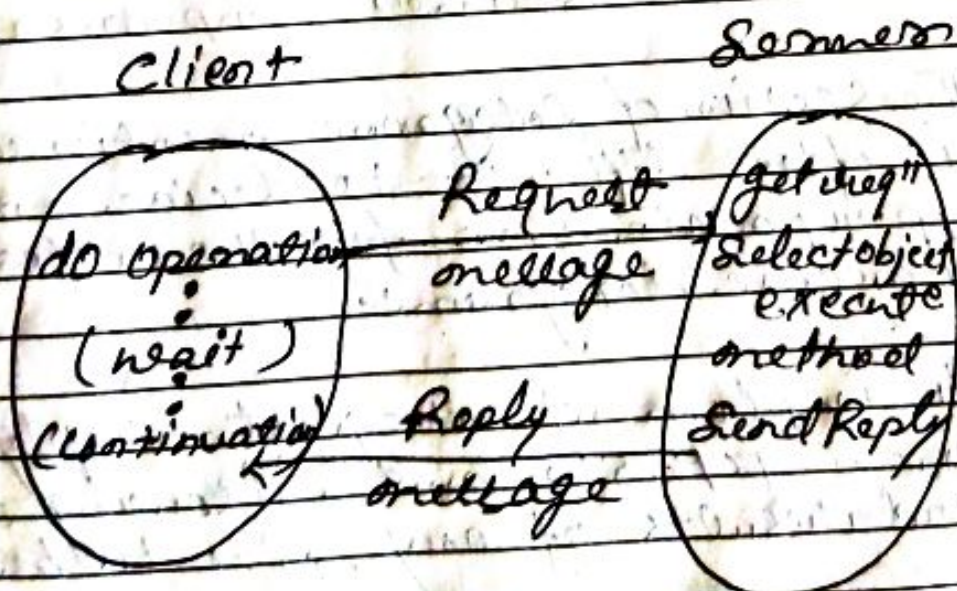 Client
Server
do operation
(wait)
(continuation)
Request
message
Reply
message
get req"
Select object
execute
method
Send Reply